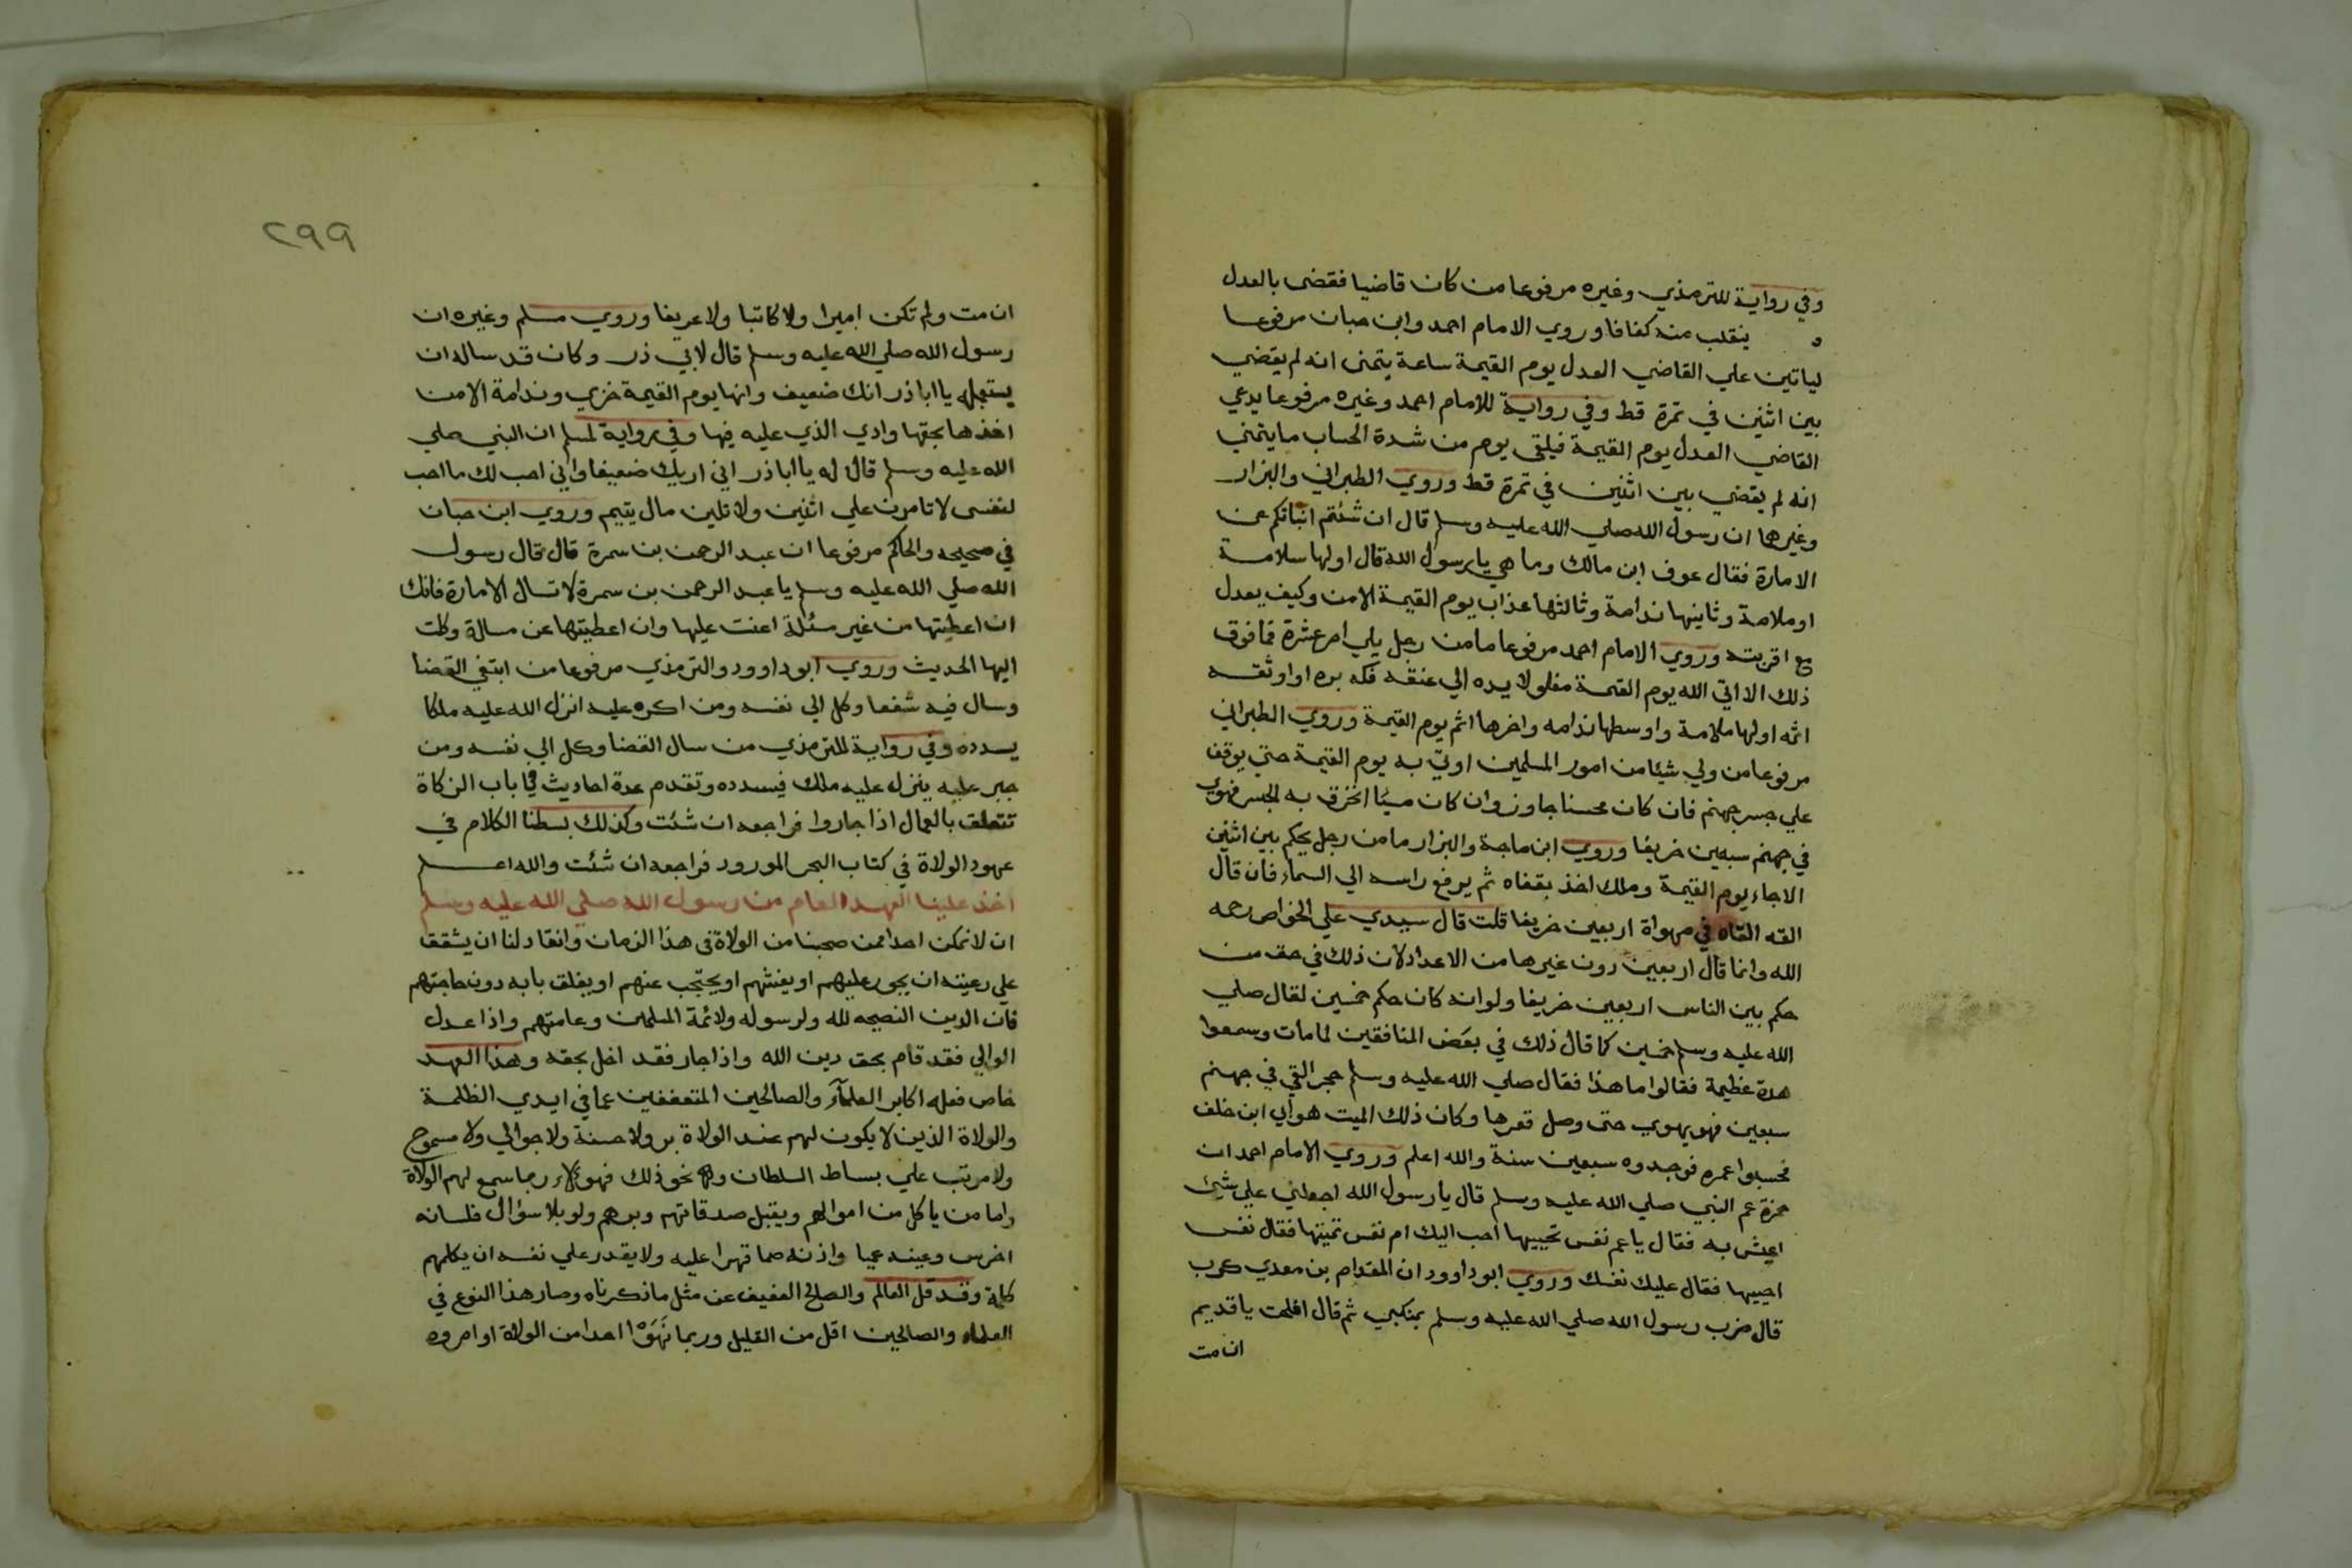 وفي رواية للترمذي وغيره مرفوعا من كان قاضيا فقضى بالعدل
ينقلب منه كفافا وروي الامام احمد وابن حبان مرفوعا
لياتين علي القاضي العدل يوم القيمة ساعة يتمنى انه لم يقضي
بين اثنين في تمرة قط وفي رواية للامام احمد وغيره مرفوعا يدعي
القاضي العدل يوم القيمة فيلقى يوم من شدة الحساب ما يتمني
انه لم يقضي بين اثنين في تمرة قط وروي الطبراني والبزار
وغيرها ان رسول الله صلي الله عليه وسلم قال ان شئتم انباتكم عن
الامارة فقال عوف ابن مالك وما هي يا رسول الله قال اولها سلامة
او ملامة وثانيها ندامة وثالثها عذاب يوم القيمة الا من وكيف يعدل
مع اقربته وروي الامام احمد مرفوعا ما من رجل يلي امر عشرة فما فوق
ذلك الا اتي الله يوم القيمة مغلولا يده الي عنقه فكه بره او اوثقه
اثمه اولها ملامة واوسطها ندامه واخرها اثم يوم القيمة وروي الطبراني
مرفوعا من ولي شيئا من امور المسلمين اوتي به يوم القيمة حتي يوقف
علي جسر جهنم فان كان محسنا جاوز وان كان مسيًا انخرق به الجسر فهوي
في جهنم سبعين خريفا وروي ابن ماجة والبزار ما من رجل يحكم بين اثنين
الا جاء يوم القيمة وملك اخذ بقفاه ثم يرفع راسه الي السماء فان قال
القه القاه في مهواة اربعين خريفا قلت قال سيدي علي الخواص رحمه
الله وانما قال اربعين دون غيرها من الاعداد لان ذلك في حق من
حكم بين الناس اربعين خريفا ولو انه كان حكم خمسين لقال صلي
الله عليه وسلم خمسين كما قال ذلك في بعض المنافقين لما مات وسمعوا
هدة عظيمة فقالوا ما هذا فقال صلي الله عليه وسلم حجر القي في جهنم
سبعين فهو يهوي حتى وصل قعرها وكان ذلك الميت هو ابي ابن خلف
فحسبوا عمره فوجدوه سبعين سنة والله اعلم وروي الامام احمد ان
حمزة عم النبي صلي الله عليه وسلم قال يا رسول الله اجعلني علي شيئ
اعيش به فقال يا عم نفس تحييها احب اليك ام نفس تميتها فقال نفس
احييها فقال عليك نفسك وروي ابو داوود ان المقدام بن معدي كرب
قال ضرب رسول الله صلي الله عليه وسلم بمنكبي ثم قال افلحت يا قديم
ان مت
٢٩٩
ان مت ولم تكن اميرا ولا كاتبا ولا عريفا وروي مسلم وغيره ان
رسول الله صلي الله عليه وسلم قال لابي ذر وكان قد ساله ان
يستعمله يا ابا ذر انك ضعيف وانها يوم القيمة خزي وندامة الا من
اخذها بحقها وادي الذي عليه فيها وفي رواية لمسلم ان النبي صلي
الله عليه وسلم قال له يا ابا ذر اني اريك ضعيفا واني احب لك ما احب
لنفسى لا تامرن علي اثنين ولا تلين مال يتيم وروي ابن حبان
في صحيحه والحاكم مرفوعا ان عبد الرحمن بن سمرة قال قال رسول
الله صلي الله عليه وسلم يا عبد الرحمن بن سمرة لا تسال الامارة فانك
ان اعطيتها من غير مسئلة اعنت عليها وان اعطيتها عن مسالة وكلت
اليها الحديث وروي ابو داوود والترمذي مرفوعا من ابتغي القضا
وسال فيه شفعا وكل الي نفسه ومن اكره عليه انزل الله عليه ملكا
يسدده وفي رواية للترمذي من سال القضا وكل الي نفسه ومن
جبر عليه ينزل عليه ملك فيسدده وتقدم عدة احاديث في باب الزكاة
تتعلق بالعمال اذا جاروا فراجعه ان شئت وكذلك بسطنا الكلام في
عهود الولاة في كتاب البحر المورود فراجعه ان شئت والله اعلم
اخذ علينا العهد العام من رسول الله صلي الله عليه وسلم
ان لا نمكن احدا ممن صحبنا من الولاة في هذا الزمان وانقاد لنا ان يشقق
علي رعيته ان يجور عليهم او يغشهم او يحتجب عنهم او يغلق بابه دون حاجتهم
فان الدين النصيحه لله ولرسوله ولائمة المسلمين وعامتهم واذا عدل
الوالي فقد قام بحق دين الله واذا جار فقد اخل بحقه وهذا العهد
خاص فعله اكابر العلمآء والصالحين المتعففين عما في ايدي الظلمة
والولاة الذين لا يكون لهم عند الولاة بر ولا حسنة ولا جوالي ولا مسموح
ولا مرتب علي بساط السلطان ولا نحو ذلك فهؤلاء ربما سمع لهم الولاة
واما من ياكل من اموالهم ويقبل صدقاتهم وبرهم ولو بلا سؤال فلسانه
اخرس وعينه عميا واذنه صما قهرا عليه ولا يقدر علي نفسه ان يكلمهم
كلمة وقد قل العالم والصالح العفيف عن مثل ما ذكرناه وصار هذا النوع في
العلماء والصالحين اقل من القليل وربما نَهَوْا احدا من الولاة او امروه